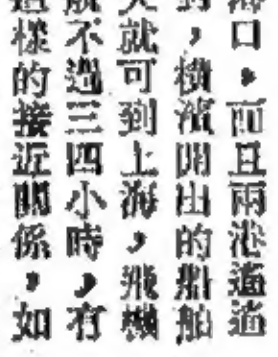 海口,而且兩港遙遙
到,橫濱開出的船舶
天就可到上海,飛機
航不過三四小時,有
這樣的接近關係,如